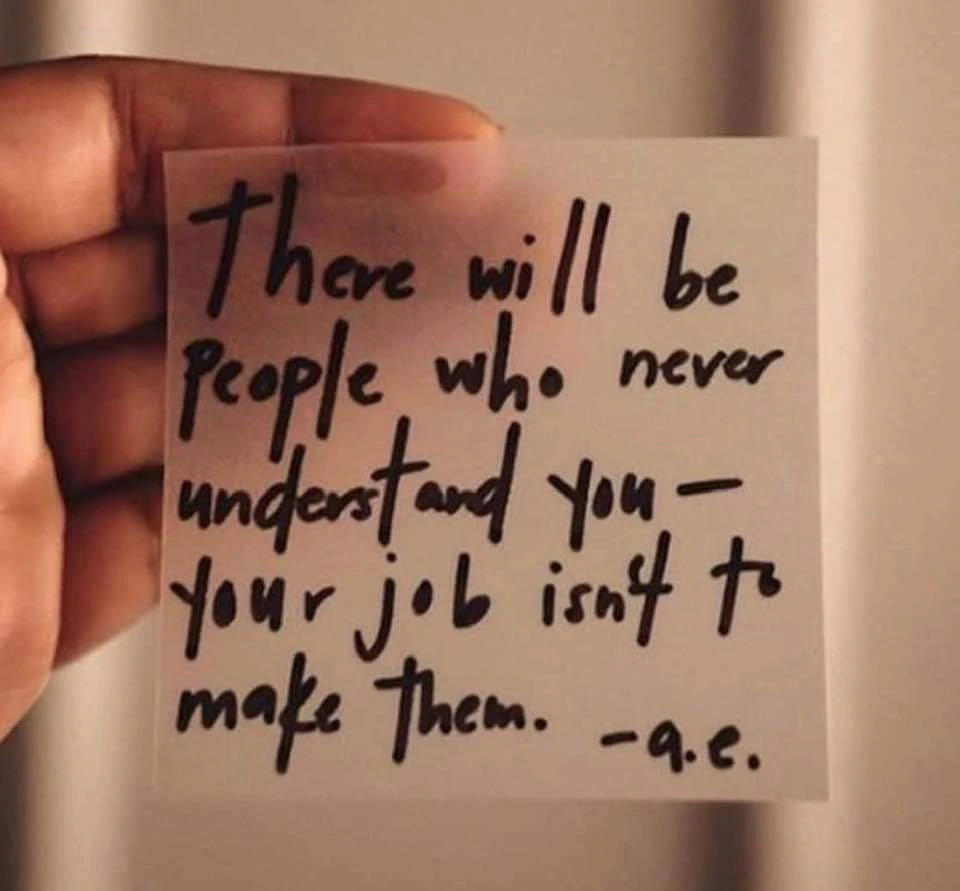 There will be
People who never
understand you –
your job isn't to
make them. -a.e.